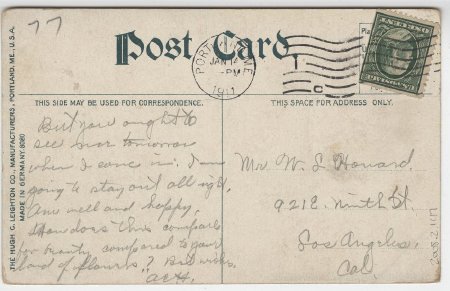 77
Post Card
PORTLAND, ME.
JAN 12
-PM
1911
THIS SIDE MAY BE USED FOR CORRESPONDENCE.
THIS SPACE FOR ADDRESS ONLY.
THE HUGH C. LEIGHTON CO., MANUFACTURERS, PORTLAND, ME., U.S.A.
MADE IN GERMANY.
But you ought to
see near tomorrow
when I come in. I am
going to stay out all night.
Am well and happy.
How does this compare
for beauty compared to your
land of flowers? Best wishes,
Mr. W. L. Howard.
921 E. Ninth St.
Los Angeles.
Cal.